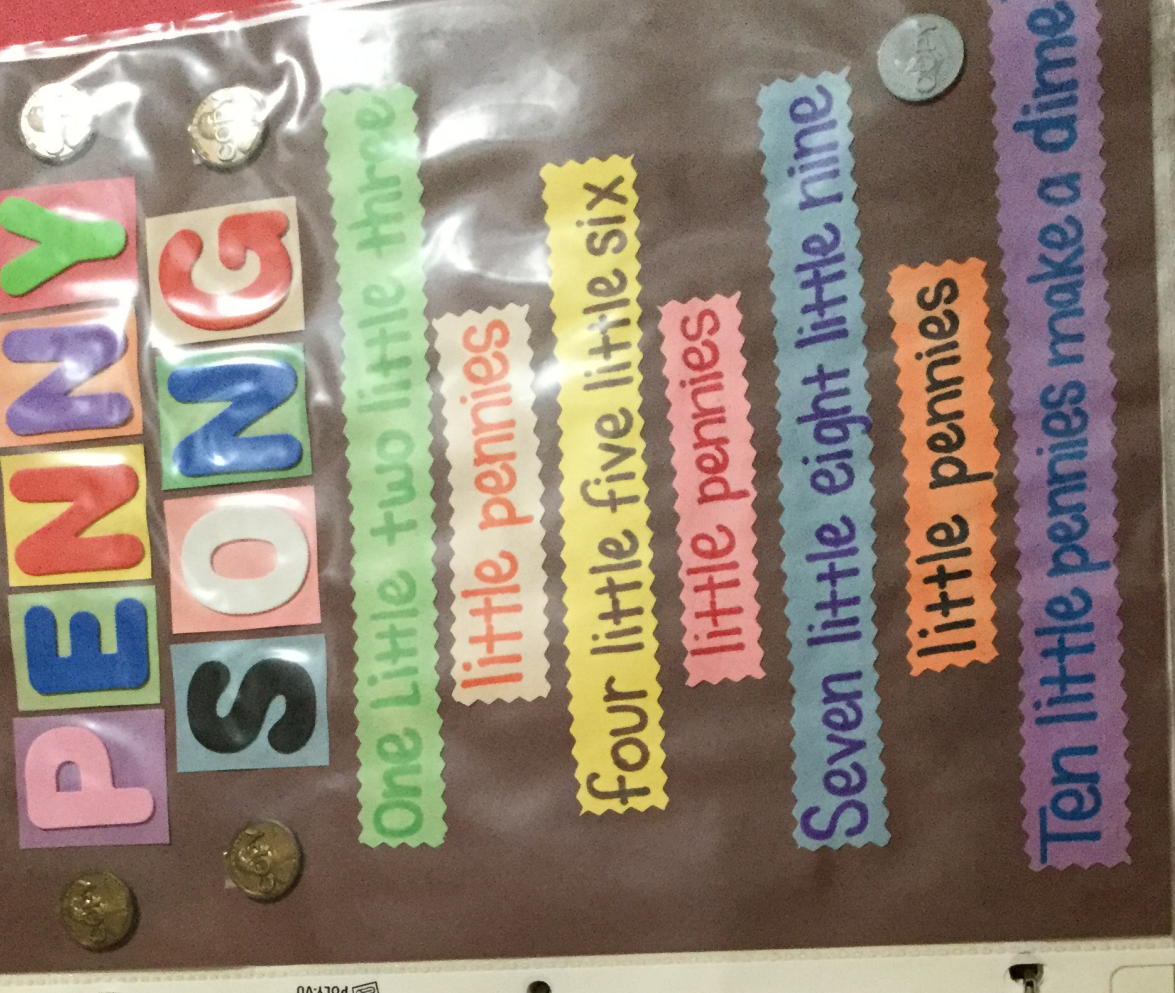 PENNY
SONG
One Little two little three
little pennies
four little five little six
little pennies
Seven little eight little nine
little pennies
Ten little pennies make a dime
COPY
COPY
COPY
POLY-VU